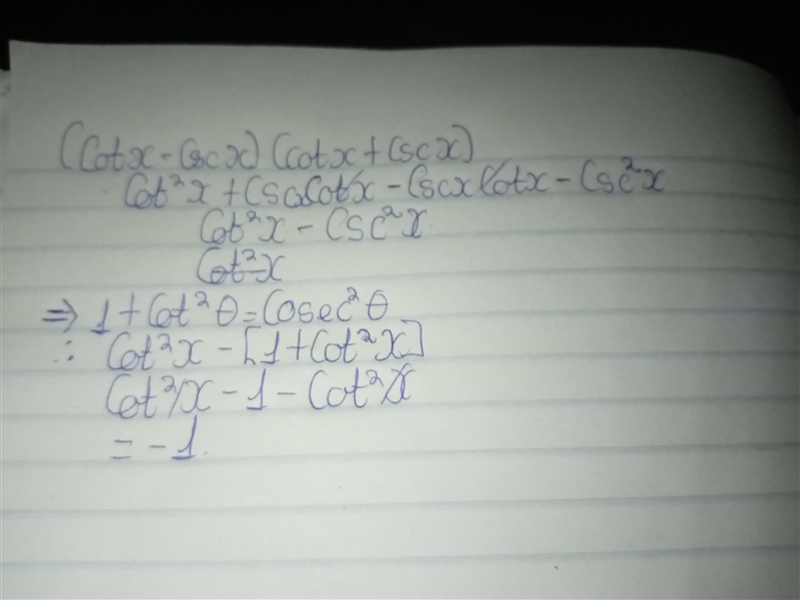 (Cotx - Cscx) (cotx + Cscx)
Cot²x + CscxCotx - CscxCotx - Csc²x
Cot²x - Csc²x
Cot²x
⇒ 1 + Cot²θ = Cosec²θ
∴ Cot²x - [1 + Cot²x]
Cot²x - 1 - Cot²x
= -1.